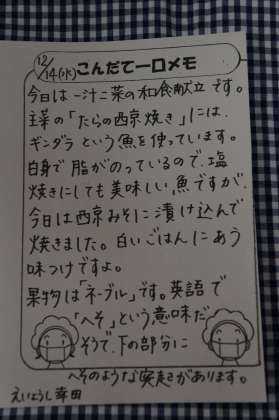 12/14(水) こんだて一口メモ
今日は一汁二菜の和食献立です。
主菜の「たらの西京焼き」には、
ギンダラという魚を使っています。
白身で脂がのっているので、塩
焼きにしても美味しい魚ですが、
今日は西京みそに漬け込んで
焼きました。白いごはんにあう
味つけですよ。
果物は「ネーブル」です。英語で
「へそ」という意味だ
そうで、下の部分に
へそのような突起があります。
えいようし 幸田